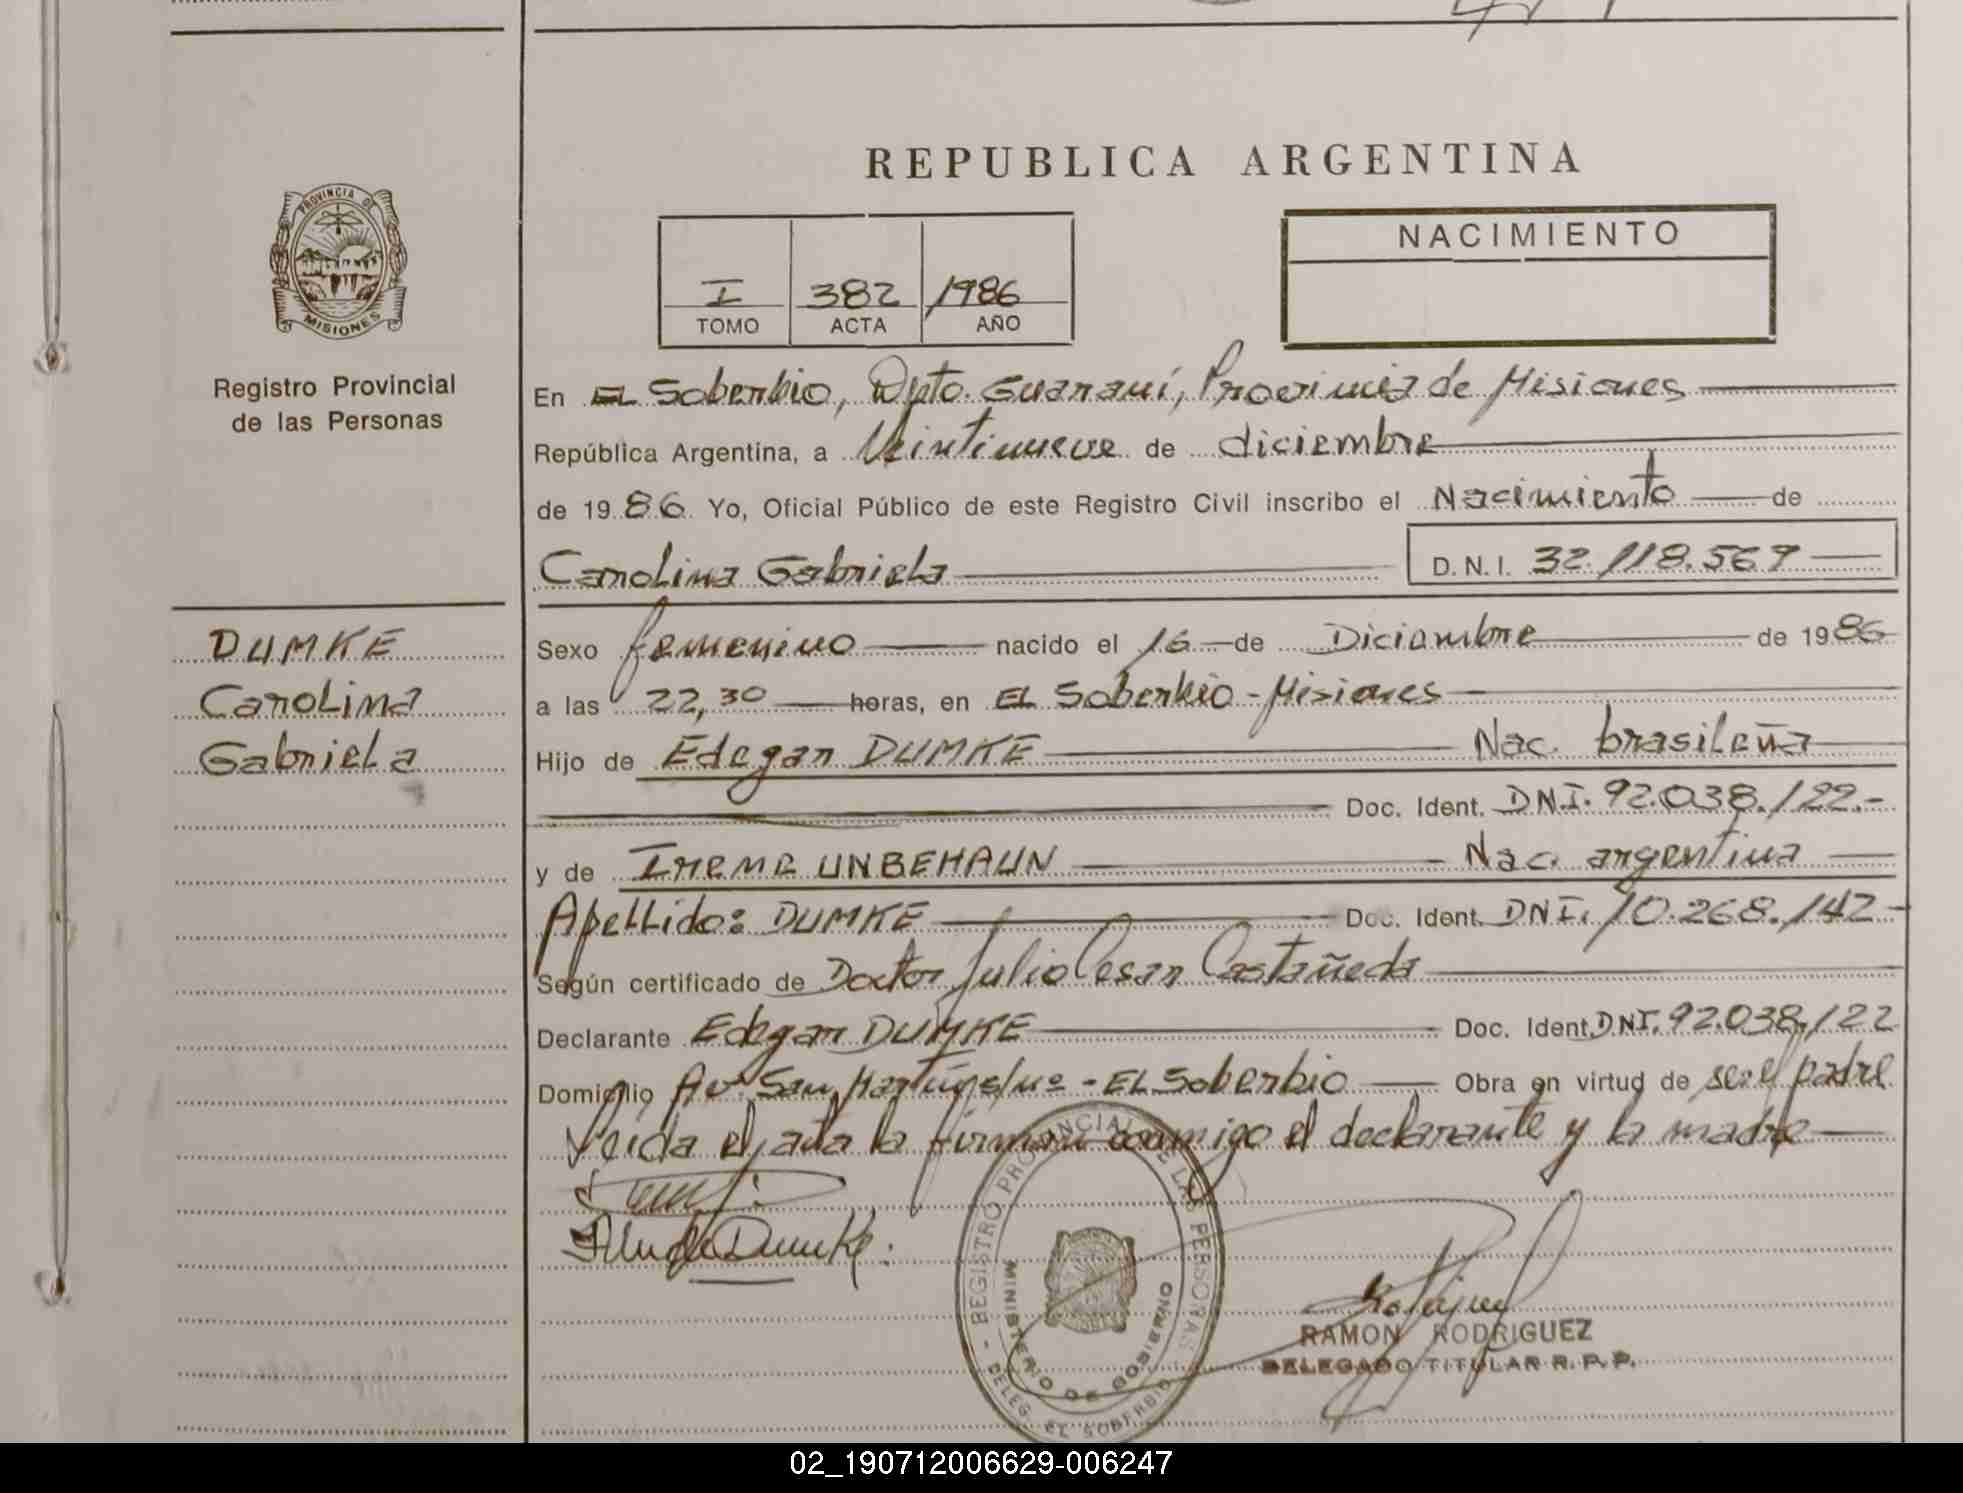 REPUBLICA ARGENTINA
PROVINCIA DE
MISIONES
Registro Provincial
de las Personas
I 382 1986
TOMO ACTA AÑO
NACIMIENTO
En EL Soberbio, Dpto. Guaraní, Provincia de Misiones
República Argentina, a Veintinueve de diciembre
de 1986 Yo, Oficial Público de este Registro Civil inscribo el Nacimiento de
Carolina Gabriela D.N.I. 32.118.569
DUMKE
Carolina
Gabriela
Sexo femenino nacido el 16 de Diciembre de 1986
a las 22,30 horas, en EL Soberbio - Misiones
Hijo de Edegar DUMKE Nac. brasileña
Doc. Ident. DNI. 92.038.122.-
y de UNBEHAUN Nac. argentina
Apellido: DUMKE Doc. Ident. DNI. 10.268.142
Según certificado de Doctor Julio Cesar Castañeda
Declarante Edegar DUMKE Doc. Ident. DNI. 92.038.122
Domicilio Av. San Martín s/nº - EL Soberbio Obra en virtud de ser el padre
Leida el acta la firman conmigo el declarante y la madre
Dumke
REGISTRO PROVINCIAL DE LAS PERSONAS
MINISTERIO DE GOBIERNO
DELEG. EL SOBERBIO
RAMON RODRIGUEZ
DELEGADO TITULAR R.P.P.
02_190712006629-006247